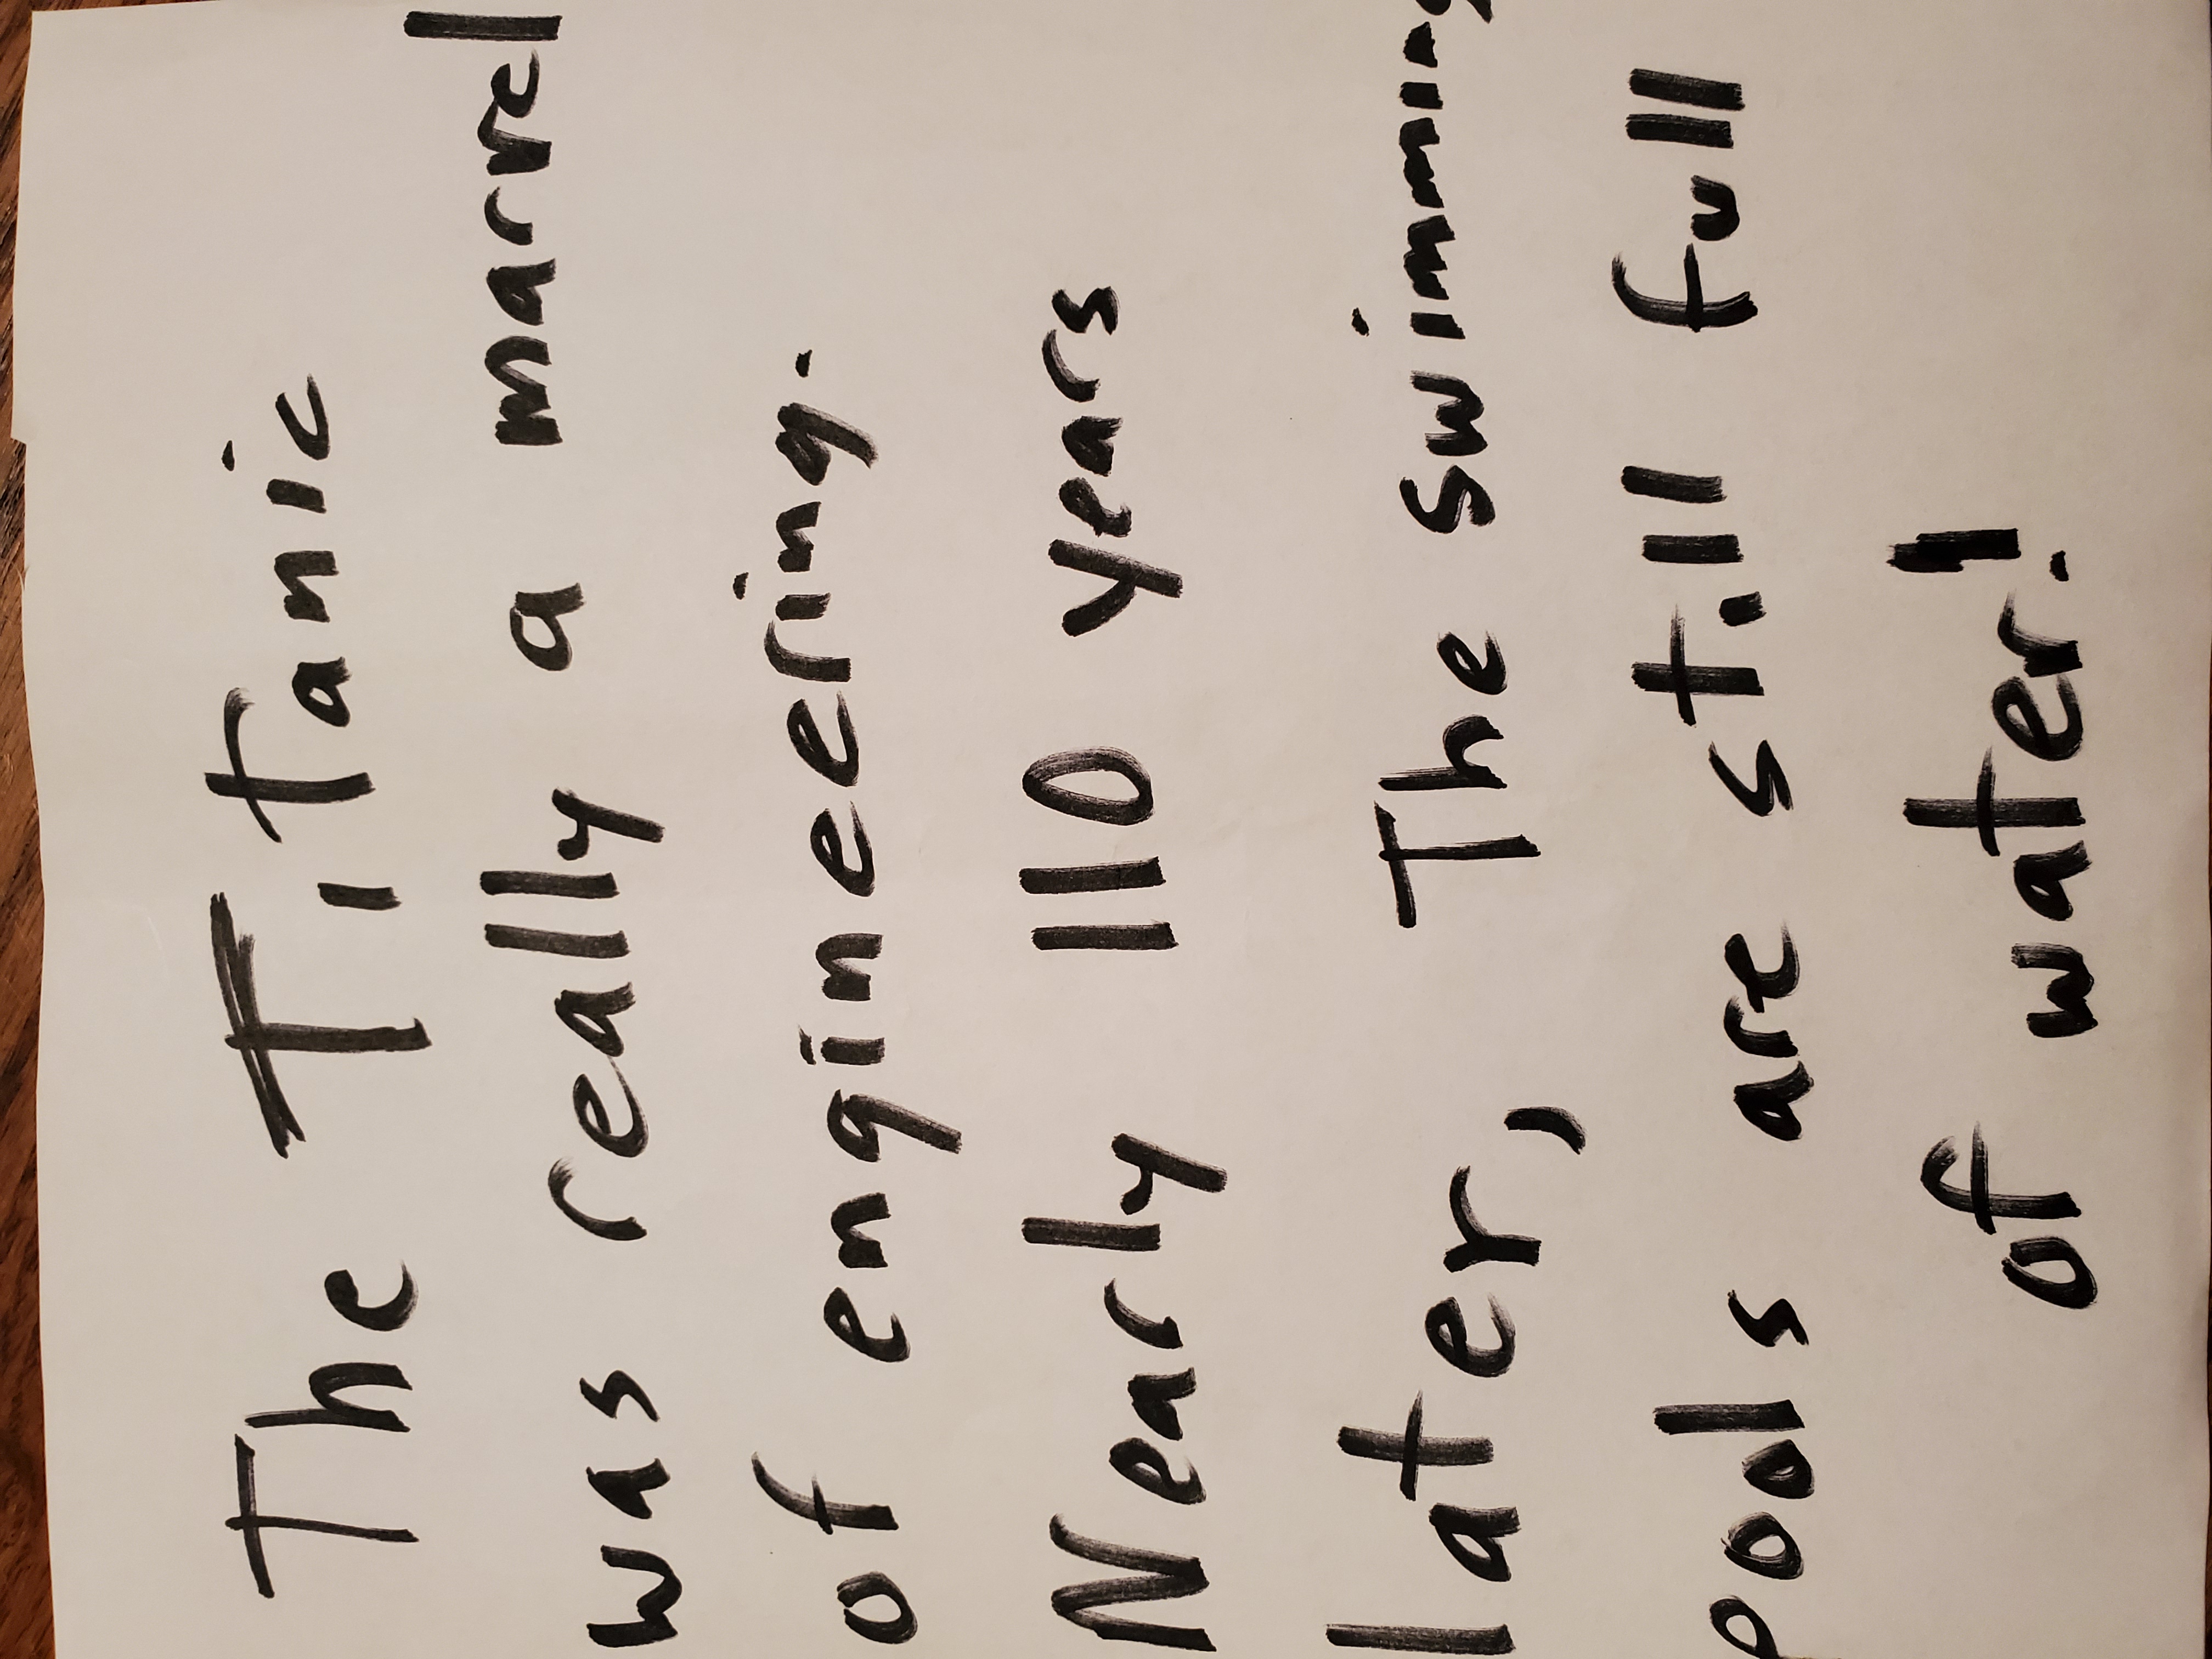 The Titanic
was really a marvel
of engineering.
Nearly 110 years
later, The swimming
pools are still full
of water!